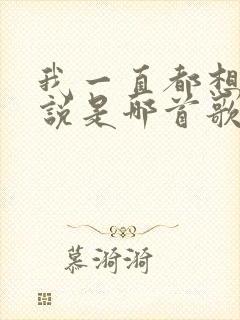 我一直都想
说是哪首歌
慕漪漪